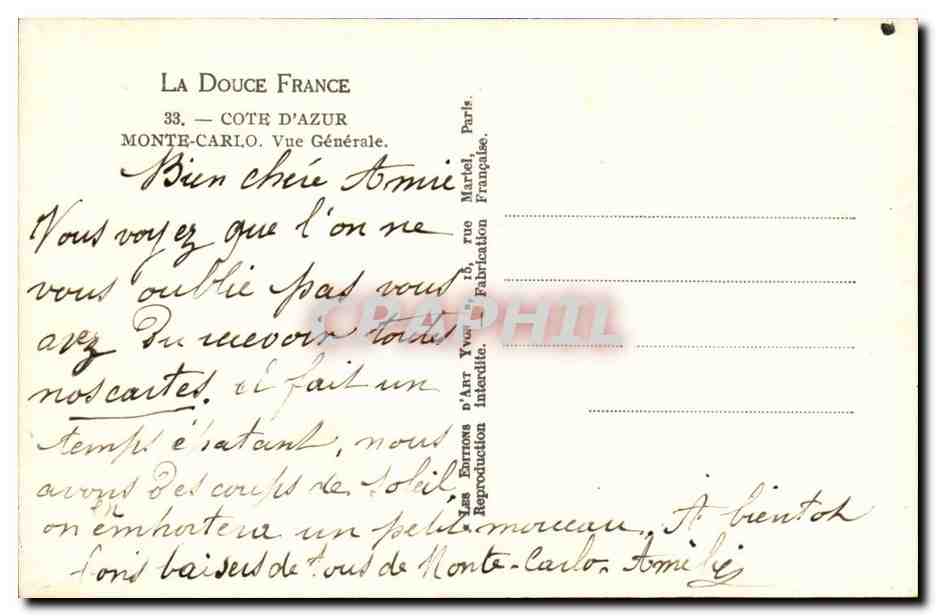 LA DOUCE FRANCE
33. — COTE D'AZUR
MONTE-CARLO. Vue Générale.
Bien chére Amie
Vous voyez que l'on ne
vous oublie pas vous
avez du recevoir toutes
nos cartes. il fait un
temps épatant, nous
avons des coups de soleil,
on en emportera un petit morceau. A bientot
bons baisers de tous de Monte-Carlo. Amélie
LES EDITIONS D'ART YVON, 15, rue Martel, Paris.
Reproduction interdite. Fabrication Française.
CPAPHIL